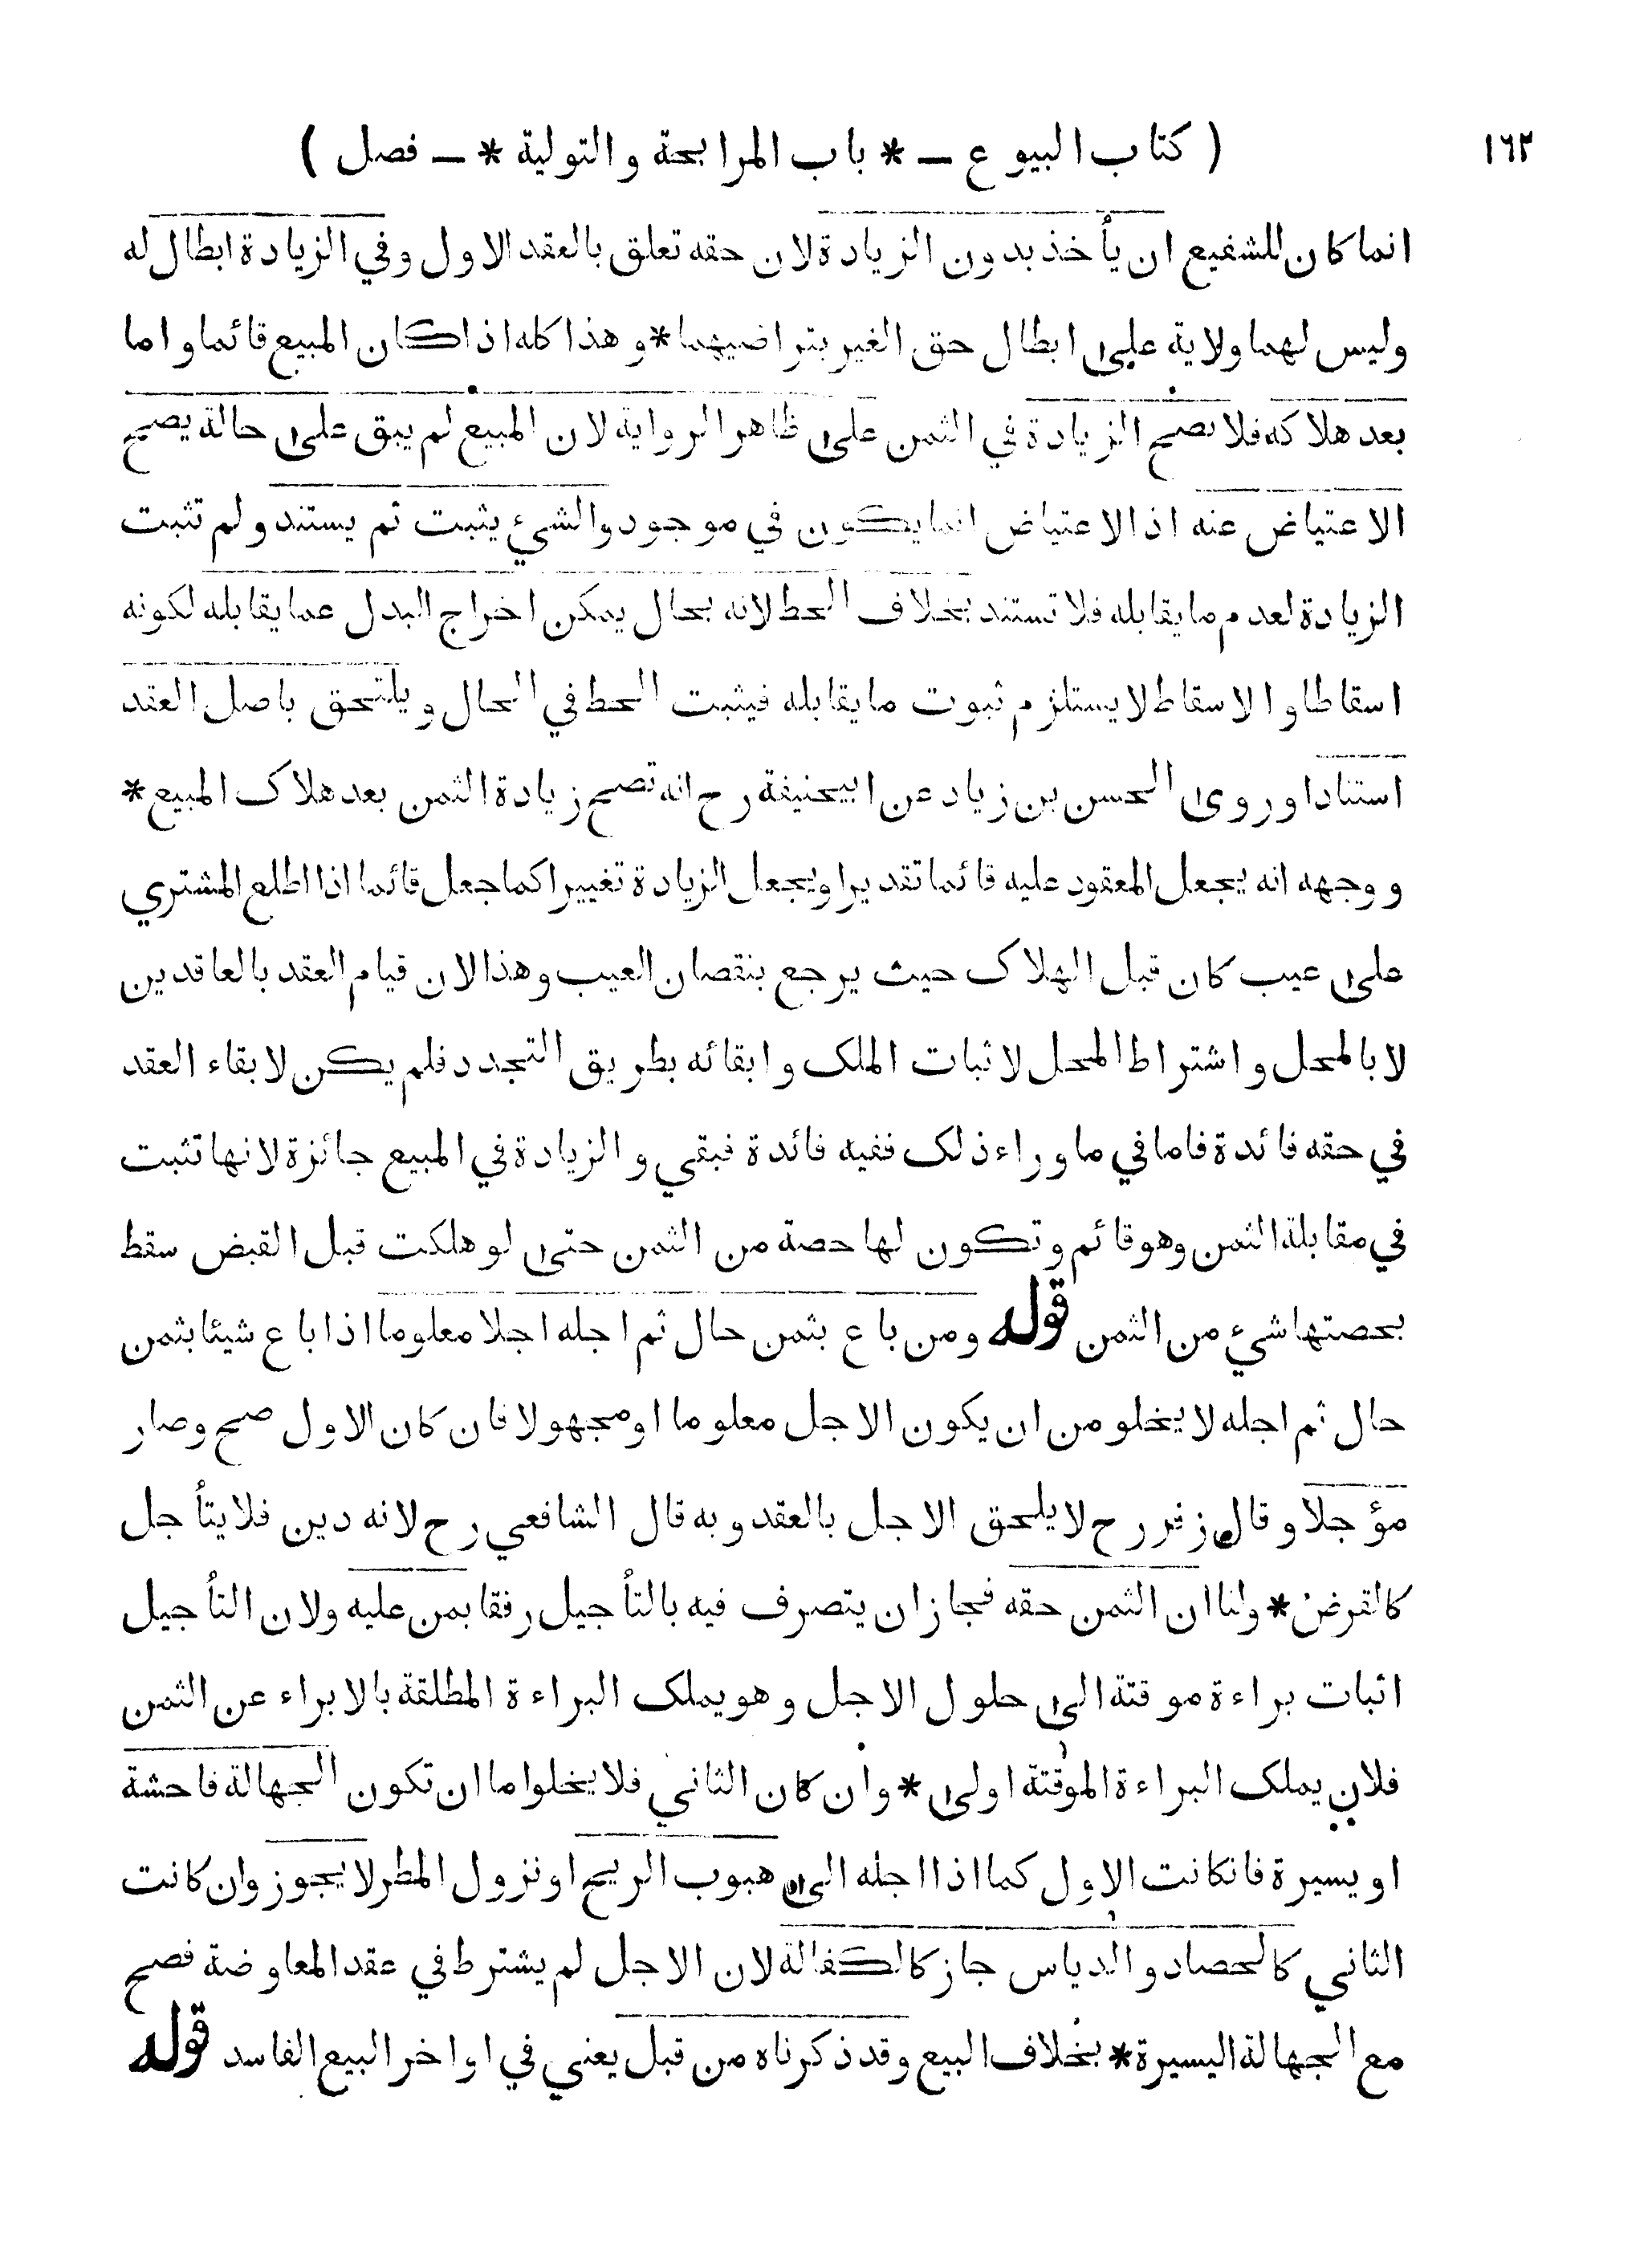 ١٦٢
( كتاب البيوع — * باب المرابحة والتولية * — فصل )
انما كان للشفيع ان يأخذ بدون الزيادة لان حقه تعلق بالعقد الاول وفي الزيادة ابطال له
وليس لهما ولاية على ابطال حق الغير بتراضيهما * وهذا كله اذا كان المبيع قائما واما
بعد هلاكه فلا تصح الزيادة في الثمن على ظاهر الرواية لان المبيع لم يبق على حالة يصح
الاعتياض عنه اذ الاعتياض انما يكون في موجود والشيء يثبت ثم يستند ولم تثبت
الزيادة لعدم ما يقابله فلا تستند بخلاف الحط لانه بحال يمكن اخراج البدل عما يقابله لكونه
اسقاطا والاسقاط لا يستلزم ثبوت ما يقابله فيثبت الحط في الحال ويلتحق باصل العقد
استنادا وروى الحسن بن زياد عن ابيحنيفة رح انه تصح زيادة الثمن بعد هلاك المبيع *
ووجهه انه يجعل المعقود عليه قائما تقديرا ويجعل الزيادة تغييرا كما جعل قائما اذا اطلع المشتري
على عيب كان قبل الهلاك حيث يرجع بنقصان العيب وهذا لان قيام العقد بالعاقدين
لا بالمحل واشتراط المحل لاثبات الملك وابقائه بطريق التجدد فلم يكن لابقاء العقد
في حقه فائدة فاما في ما وراء ذلك ففيه فائدة فبقي والزيادة في المبيع جائزة لانها تثبت
في مقابلة الثمن وهو قائم وتكون لها حصة من الثمن حتى لو هلكت قبل القبض سقط
بحصتها شيء من الثمن قوله ومن باع بثمن حال ثم اجله اجلا معلوما اذا باع شيئا بثمن
حال ثم اجله لا يخلو من ان يكون الاجل معلوما او مجهولا فان كان الاول صح وصار
مؤجلا وقال زفر رح لا يلحق الاجل بالعقد وبه قال الشافعي رح لانه دين فلا يتأجل
كالقرض * ولنا ان الثمن حقه فجاز ان يتصرف فيه بالتأجيل رفقا بمن عليه ولان التأجيل
اثبات براءة موقتة الى حلول الاجل وهو يملك البراءة المطلقة بالابراء عن الثمن
فلان يملك البراءة الموقتة اولى * وان كان الثاني فلا يخلوا ما ان تكون الجهالة فاحشة
او يسيرة فانكانت الاول كما اذا اجله الى هبوب الريح او نزول المطر لا يجوز وان كانت
الثاني كالحصاد والدياس جاز كالكفالة لان الاجل لم يشترط في عقد المعاوضة فصح
مع الجهالة اليسيرة * بخلاف البيع وقد ذكرناه من قبل يعني في اواخر البيع الفاسد قوله